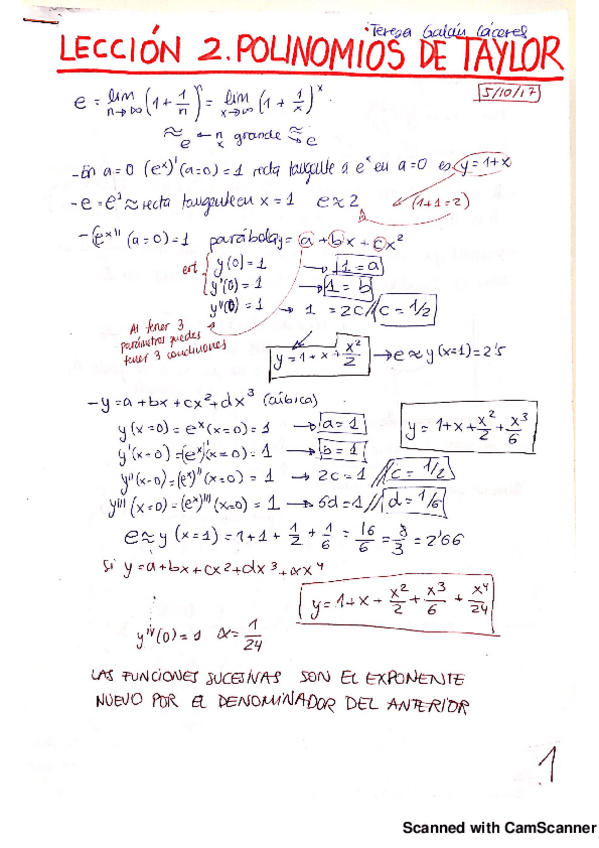 Teresa Galán Cáceres
LECCIÓN 2. POLINOMIOS DE TAYLOR
5/10/17
e = lim n→∞ (1 + 1/n)^n = lim x→∞ (1 + 1/x)^x.
≈ e ← n x grande ≈ e
- En a=0 (e^x)'(a=0) = 1 recta tangente a e^x en a=0 es y=1+x
- e = e^1 ≈ recta tangente en x = 1 e ≈ 2 (1+1=2)
- (e^x)'' (a=0)=1 parábola y = a + bx + cx²
y(0) = 1 → 1 = a
y'(0) = 1 → 1 = b
y''(0) = 1 → 1 = 2c // c = 1/2
Al tener 3
parámetros puedes
tener 3 condiciones
y = 1 + x + x²/2 → e ≈ y(x=1) = 2'5
- y = a + bx + cx² + dx³ (cúbica)
y(x=0) = e^x(x=0) = 1 → a = 1
y = 1 + x + x²/2 + x³/6
y'(x=0) = (e^x)'(x=0) = 1 → b = 1
y''(x=0) = (e^x)''(x=0) = 1 → 2c = 1 // c = 1/2
y'''(x=0) = (e^x)'''(x=0) = 1 → 6d = 1 // d = 1/6
e ≈ y (x=1) = 1 + 1 + 1/2 + 1/6 = 16/6 = 8/3 = 2'66
Si y = a + bx + cx² + dx³ + αx⁴
y = 1 + x + x²/2 + x³/6 + x⁴/24
y^IV(0) = 1 α = 1/24
LAS FUNCIONES SUCESIVAS SON EL EXPONENTE
NUEVO POR EL DENOMINADOR DEL ANTERIOR
1
Scanned with CamScanner